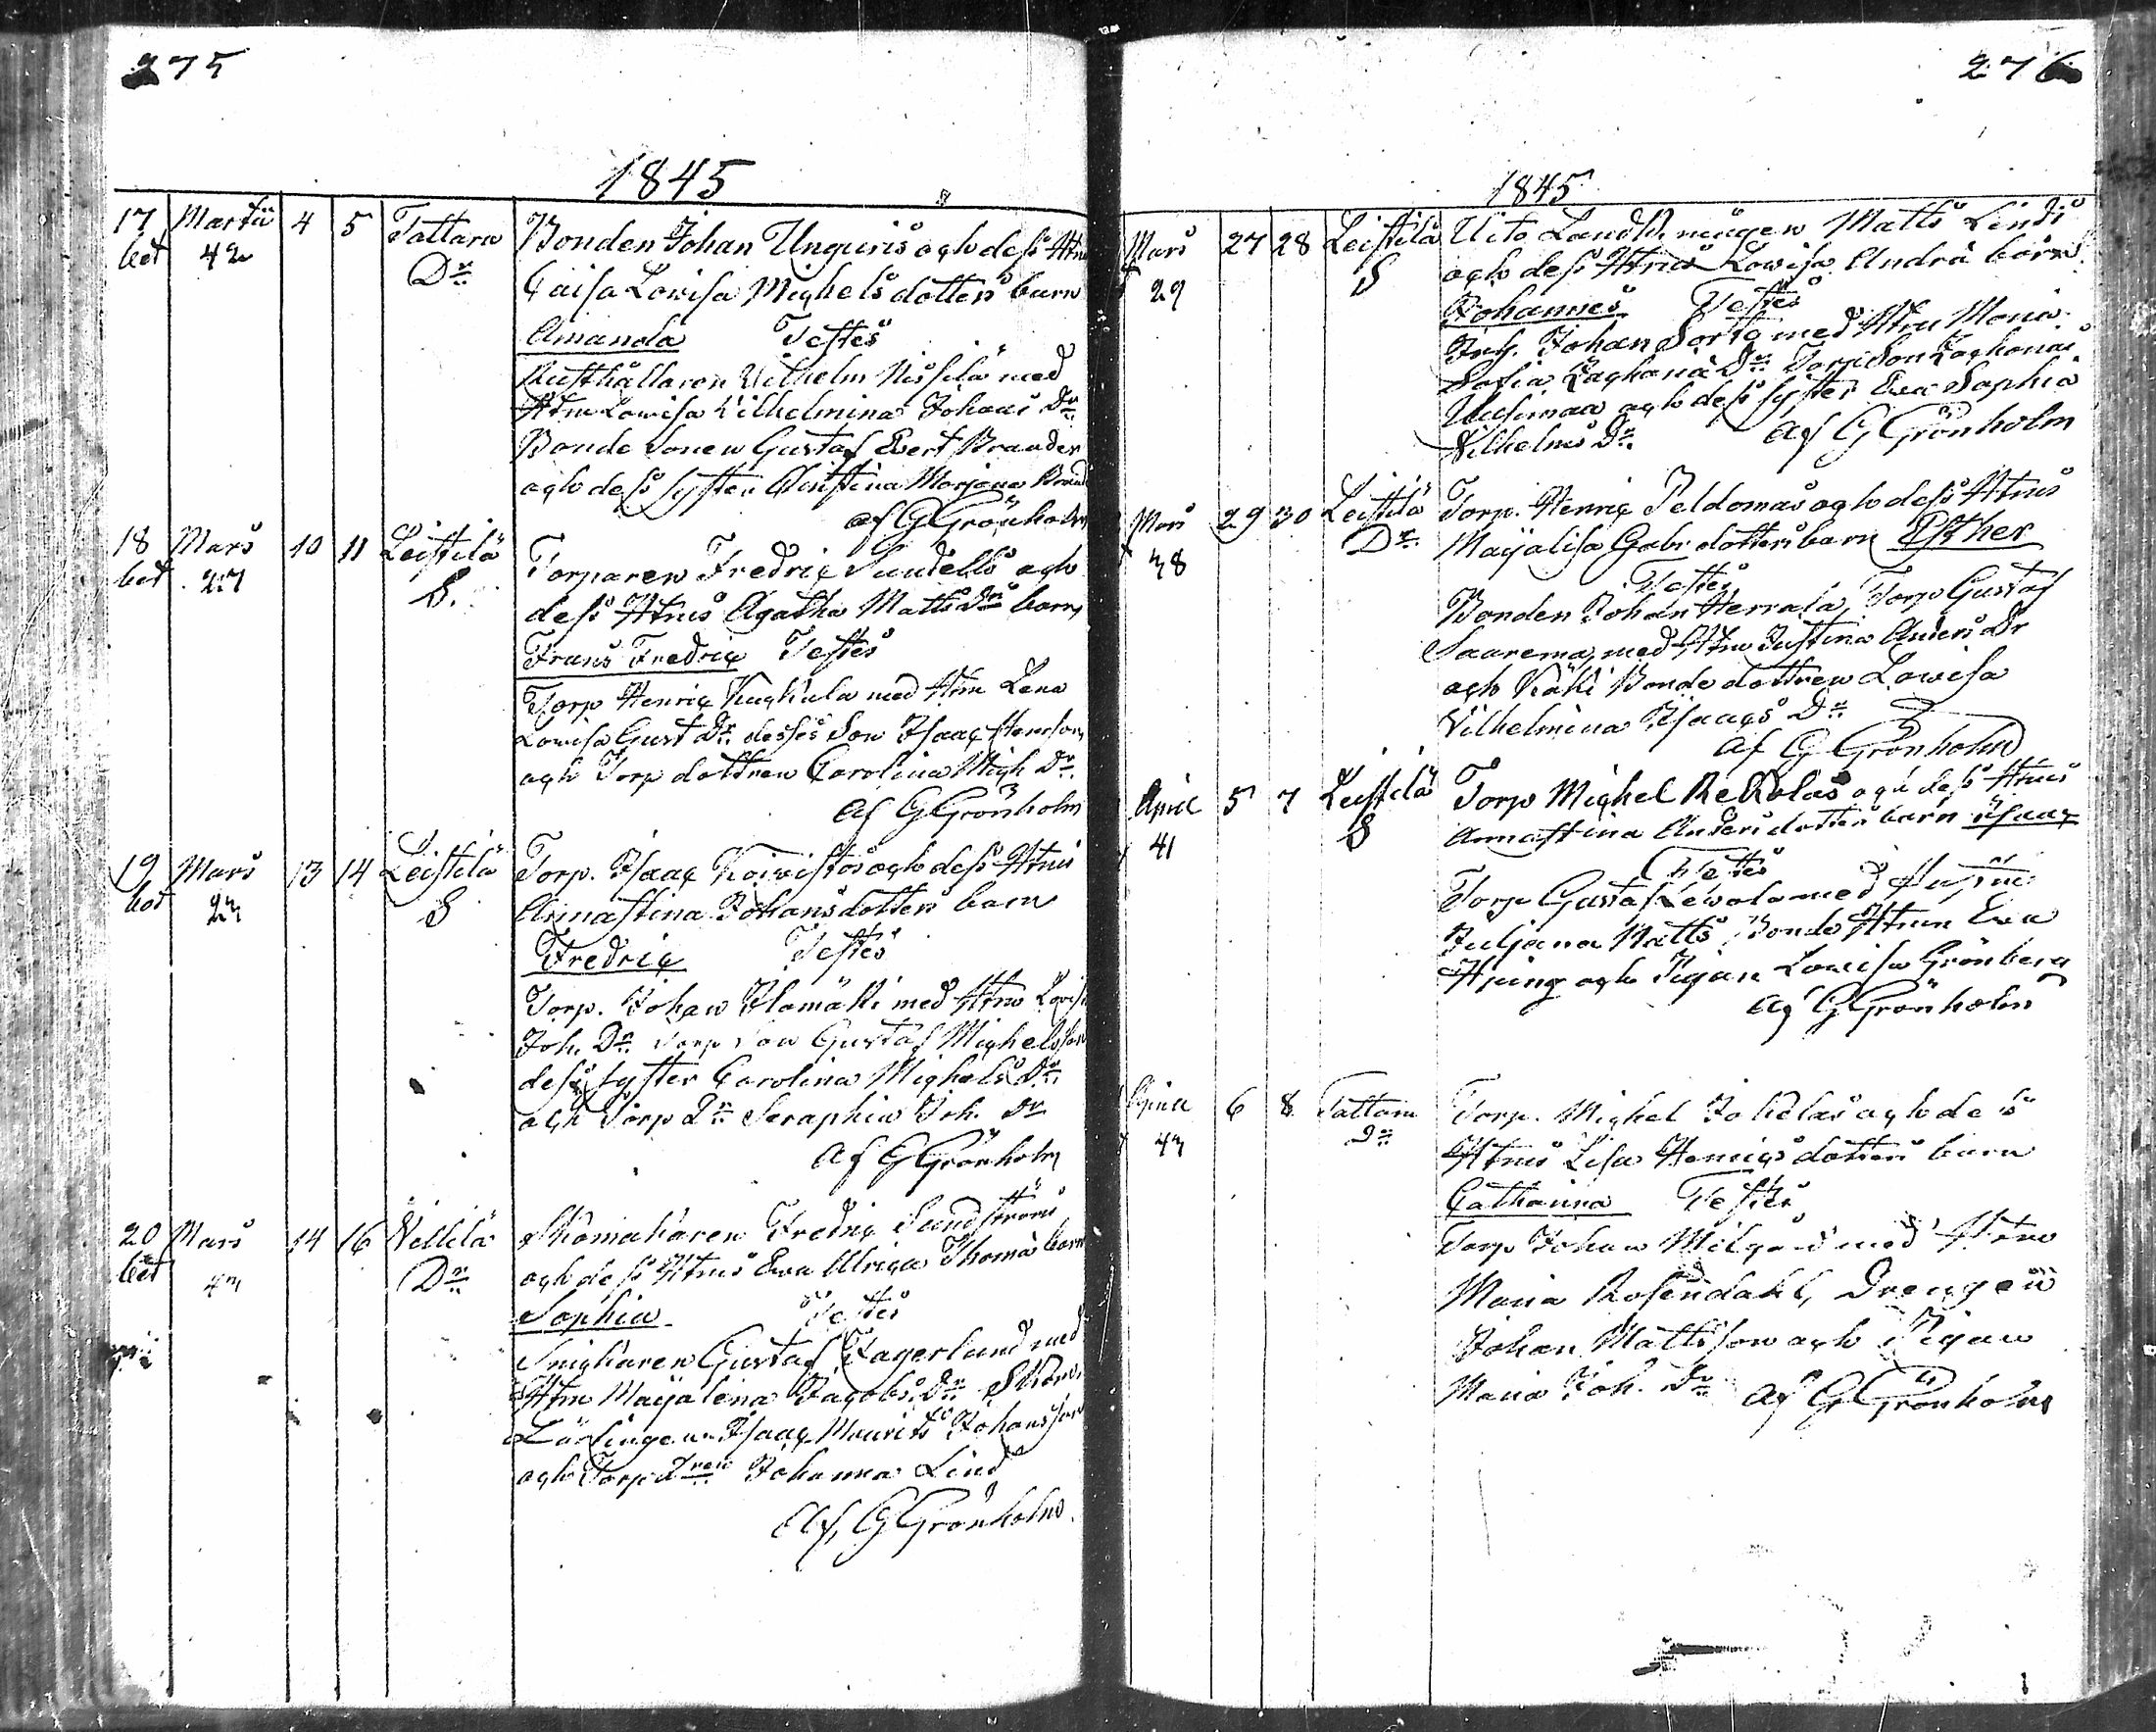 275
1845
17 Martii 4 5 Tattara Bonden Johan Unguris och dess Hru
bet 42 Dr Caisa Lovisa Michels dotters barn
Amanda Testes
Rusthållaren Vilhelm Nissilä med
Hru Lovisa Vilhelmina Johans Dr
Bonde Sonen Gustaf Evert Brander
och dess syster Christina Marjana
af G Grönholm
18 Mars 10 11 Leistilä Torparen Fredric Sundells och
bet 27 S. dess Hrus Agatha Matts Drs barn
Frans Fredric Testes
Torp Henric Kuckula med Hru Lena
Lovisa Gust Dr. desses Son Isaac Henrsson
och Torp dottren Carolina Mich Dr.
af G Grönholm
19 Mars 13 14 Leistilä Torp. Isaac Koivistos och dess Hrus
bet S Annastina Johans dotters barn
Fredric Testes
Torp. Johan Ylamäki med Hru Lovisa
Joh. Dr. Torp son Gustaf Michelsson
dess syster Carolina Michels Dr.
och Torp Dr Seraphia Joh. Dr
af G Grönholm
20 Mars 14 16 Villilä Skomakaren Fredric Sundströms
bet Dr och dess Hrus Eva Ulrica Thomä barn
Sophia Testes
Snickaren Gustaf Fagerlund med
Hru Maijalena Jacobs Dr Skom.
Lärlingen Isaac Mourits Johansson
och Torp Dren Johanna Lind
Af, G Grönholm.
276
1845
Mars 27 28 Leistilä Uito Landbonden Matts Linds
29 S och dess Hrus Lovisa Andrä barn
Johannes Testes
Inh. Johan Sorto med Hru Maria
Sofia Zachariä Dr Torp Son Zacharias
Uusimaa och dess syster Eva Sophia
Vilhelms Dr. af G Grönholm
Mars 29 30 Leistilä Torp. Henric Peldomas och dess Hrus
38 Dr. Maijalisa Gabr dotters barn Esther
Testes
Bonden Johan Herrala, Torp Gustaf
Saarema med Hru Justina Anders Dr
och Käki Bonde dottren Lovisa
Vilhelmina Isaacs Dr
af G Grönholm
April 5 7 Leistilä Torp Michel Rekolas och dess Hrus
41 S Annastina Anders dotters barn Isaac
Testes
Torp Gustaf Lewola med Hustru
Juljana Matts, Bonde Hrun Eva
och Pigan Lovisa Grönberg
af G Grönholm
April 6 8 Tattara Torp. Michel Jokelas och dess
43 Dr Hrus Lisa Henrics dotters barn
Catharina Testes
Torp Johan med Hru
Maria Rosendahl, Drengen
Johan Mattsson och Pigan
Maria Joh. Dr af G Grönholm